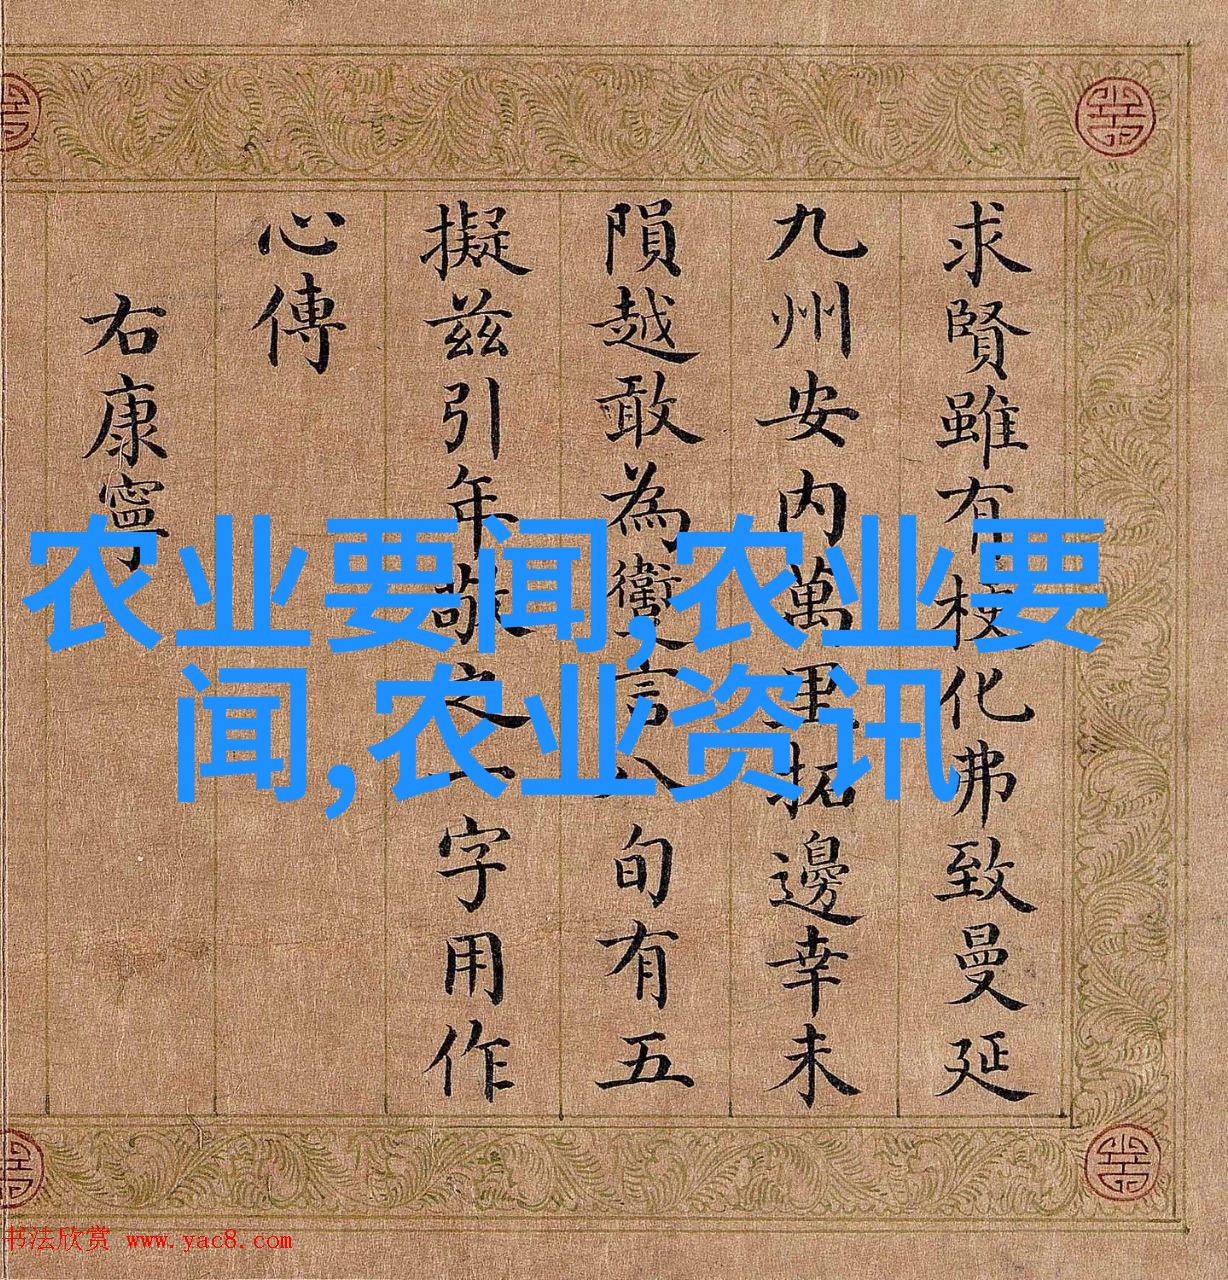 求賢雖有化弗致曼延
九州安内萬里拓邊幸未
隕越敢為衛言八旬有五
擬兹引年敬之一字用作
心傳
右康寧
农业要闻,农业要
闻,农业资讯
书法欣赏 www.yac8.com